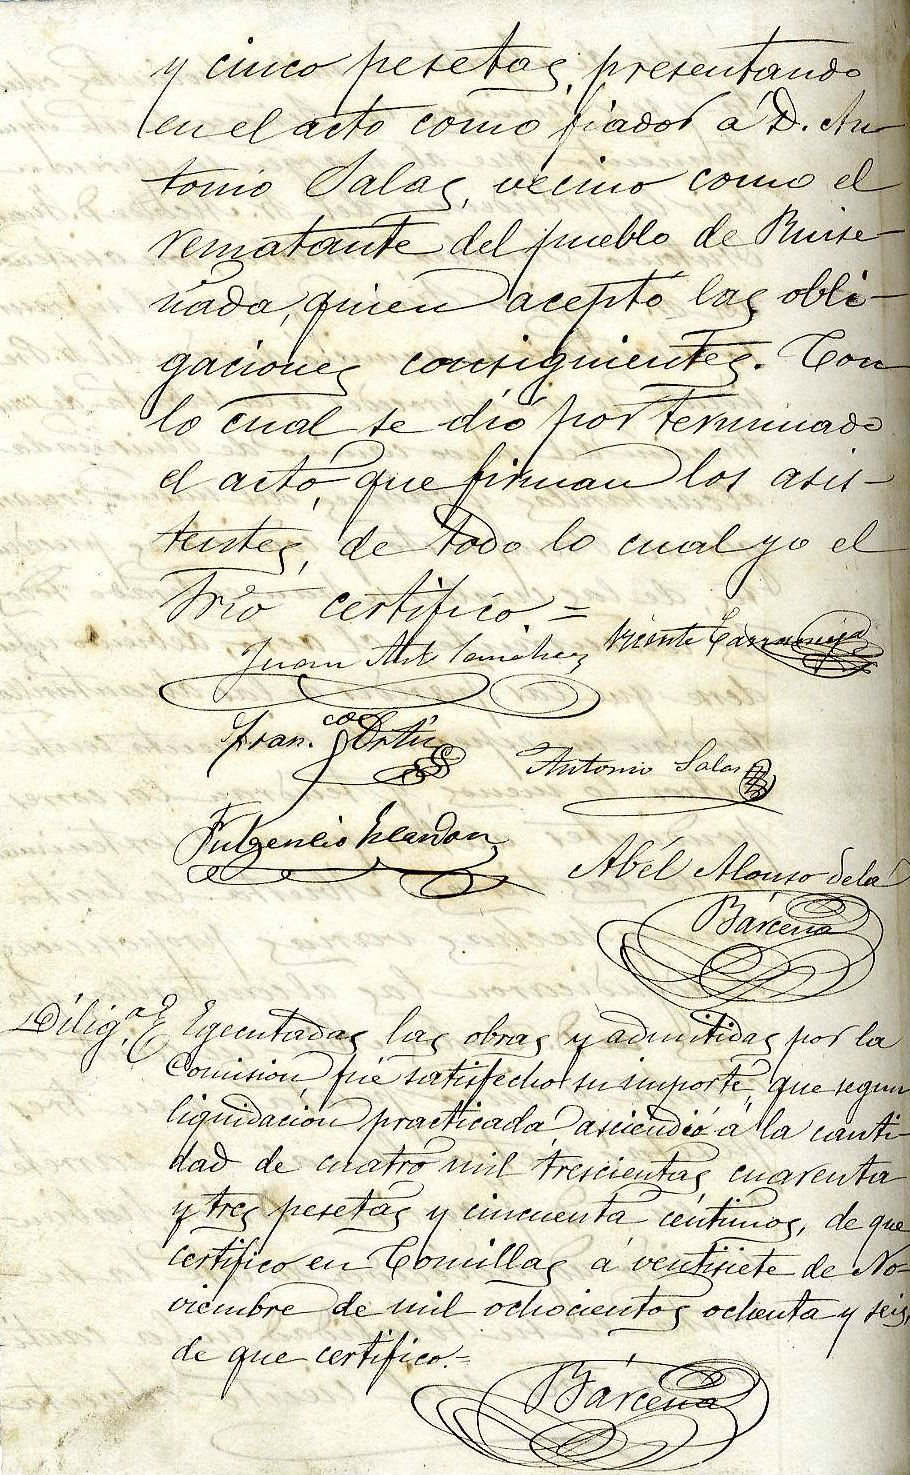 y cinco pesetas, presentando
en el acto como fiador á D. An-
tonio Salas, vecino como el
rematante del pueblo de Ruise-
ñada, quien aceptó las obli-
gaciones consiguientes. Con
lo cual se dió por terminado
el acto, que firman los asis-
tentes, de todo lo cual yo el
Srio certifico. =
Juan Ant. Sanchez Vicente Carranceja
Fran.co Ortiz
Antonio Salas
Fulgencio
Abél Alonso de la
Bárcena
Dilig.a Egecutadas las obras y admitidas por la
Comision fue satisfecho su importe, que segun
liquidación practicada ascendió á la canti-
dad de cuatro mil trescientas cuarenta
y tres pesetas y cincuenta céntimos, de que
certifico en Comillas á ventisiete de No-
viembre de mil ochocientos ochenta y seis,
de que certifico.=
Bárcena